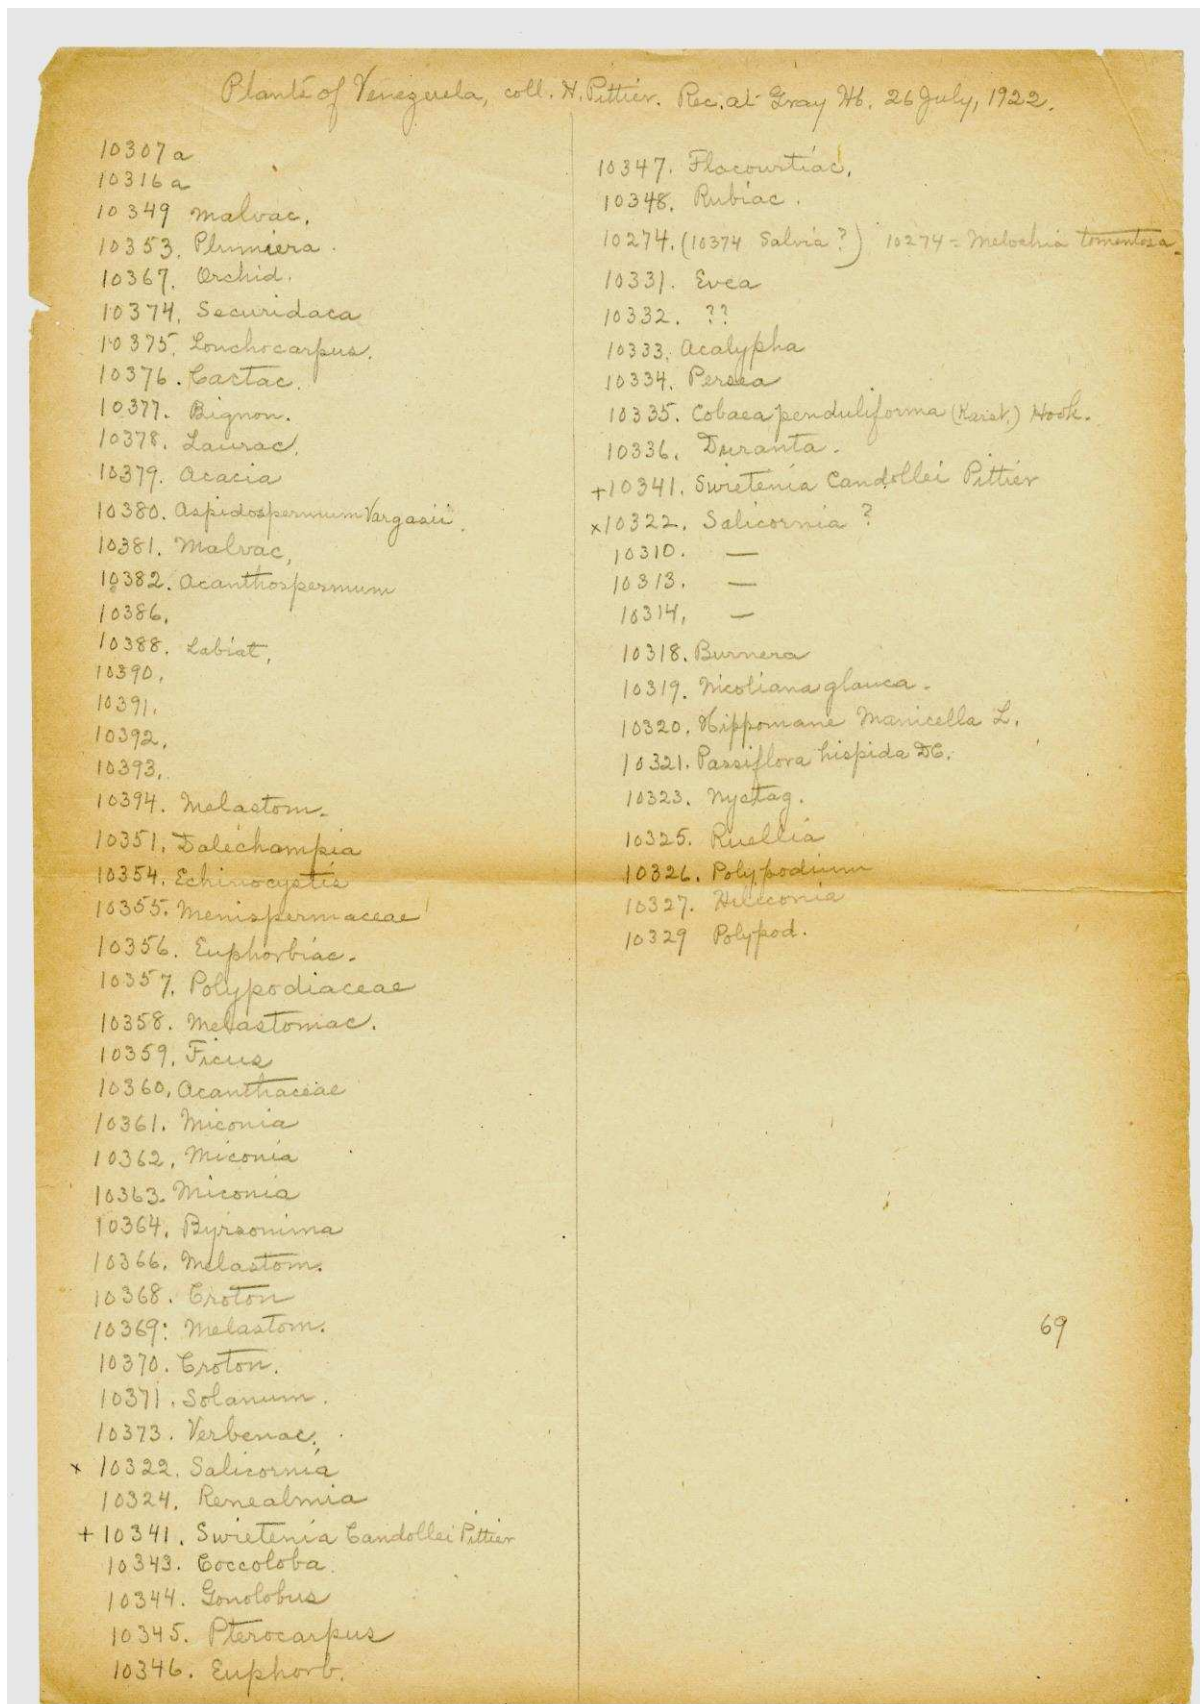 Plants of Venezuela, coll. H. Pittier. Rec. at Gray Hb. 26 July, 1922.
10307a
10316a
10349 Malvac.
10353. Plumiera.
10367. Orchid.
10374. Securidaca
10375. Lonchocarpus.
10376. Cactac.
10377. Bignon.
10378. Laurac.
10379. Acacia
10380. Aspidospermum Vargasii.
10381. Malvac.
10382. Acanthospermum
10386.
10388. Labiat.
10390.
10391.
10392.
10393.
10394. Melastom.
10351. Dalechampia
10354. Echinocystis
10355. Menispermaceae
10356. Euphorbiac.
10357. Polypodiaceae
10358. Melastomac.
10359. Ficus
10360. Acanthaceae
10361. Miconia
10362. Miconia
10363. Miconia
10364. Byrsonima
10366. Melastom.
10368. Croton
10369: Melastom.
10370. Croton.
10371. Solanum.
10373. Verbenac.
x 10322. Salicornia
10324. Renealmia
+ 10341. Swietenia Candollei Pittier
10343. Coccoloba.
10344. Gonolobus
10345. Pterocarpus
10346. Euphorb.
10347. Flacourtiac.
10348. Rubiac.
10274. (10374 Salvia?) 10274 = Melochia tomentosa.
10331. Evea
10332. ??
10333. Acalypha
10334. Persea
10335. Cobaea penduliforma (Karst.) Hook.
10336. Duranta.
+10341. Swietenia Candollei Pittier
x10322. Salicornia ?
10310. —
10313. —
10314. —
10318. Burnera
10319. Nicotiana glauca.
10320. Hippomane Manicella L.
10321. Passiflora hispida DC.
10323. Nyctag.
10325. Ruellia
10326. Polypodium
10327. Heleconia
10329 Polypod.
69